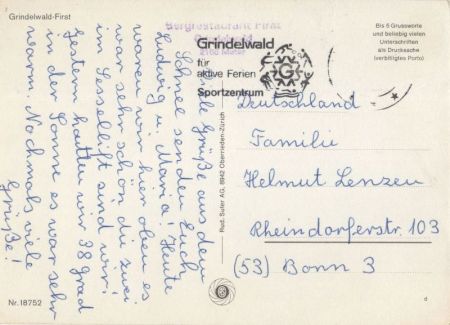 Grindelwald-First
Bergrestaurant First
Grindelwald
2168 Meter
Grindelwald
für
aktive Ferien
Sportzentrum
G
Bis 5 Grussworte
und beliebig vielen
Unterschriften
als Drucksache
(verbilligtes Porto)
Viele Grüße aus dem
Schnee senden Euch
Ludwig u. Maria! Heute
waren wir hier oben es
war sehr schön die zwei
im Sesselllift sind wir.
Gestern hatten wir 38 grad
in der Sonne es war sehr
warm. Nochmals viele
Grüße!
Rud. Suter AG, 8942 Oberrieden-Zürich
Deutschland
Familie
Helmut Lenzen
Rheindorferstr. 103
(53) Bonn 3
Nr. 18752
d